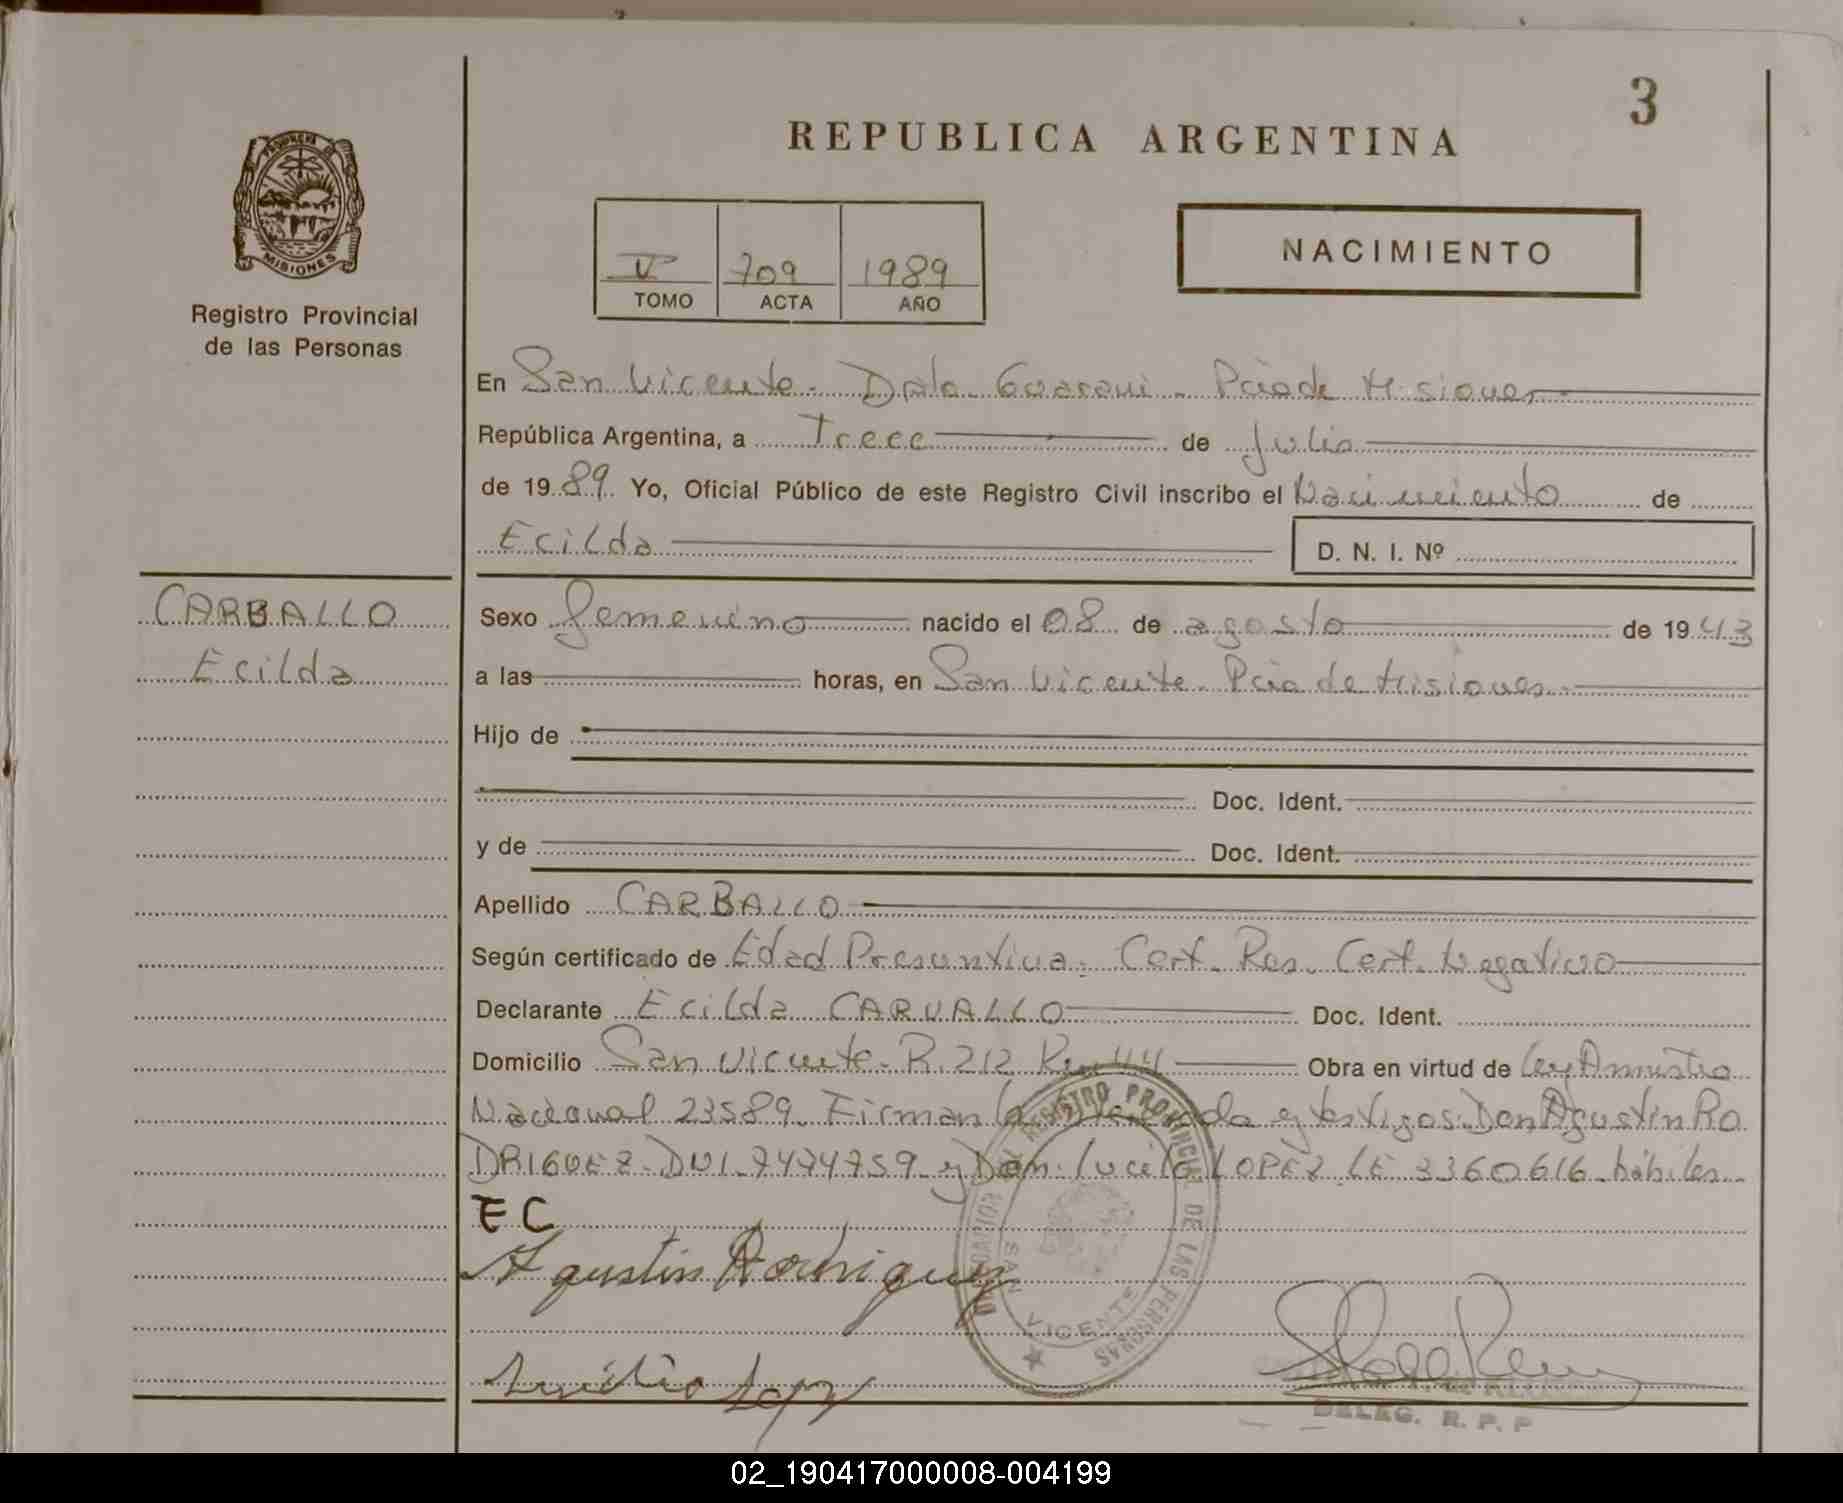 3
REPUBLICA ARGENTINA
PROVINCIA DE
MISIONES
Registro Provincial
de las Personas
V 709 1989
TOMO ACTA AÑO
NACIMIENTO
En San Vicente. Dpto. Guarani. Pcia de Misiones
República Argentina, a Trece de Julio
de 1989 Yo, Oficial Público de este Registro Civil inscribo el Nacimiento de
Ecilda D. N. I. Nº
CARBALLO
Ecilda
Sexo femenino nacido el 08 de agosto de 1943
a las horas, en San Vicente. Pcia de Misiones.
Hijo de
Doc. Ident.
y de Doc. Ident.
Apellido CARBALLO
Según certificado de Edad Presuntiva. Cert. Res. Cert. Negativo
Declarante Ecilda CARVALLO Doc. Ident.
Domicilio San Vicente. R. 212 Km 44 Obra en virtud de Ley Amnistia
Nacional 23589. Firman la y testigos: Don Agustin RO
DRIGUEZ. DNI. 7474759 y Don LOPEZ LE 3360616. hábiles
EC
Agustin Rodriguez
REGISTRO PROVINCIAL DE LAS PERSONAS
SAN VICENTE
Lopez
DELEG. R. P. P
02_190417000008-004199